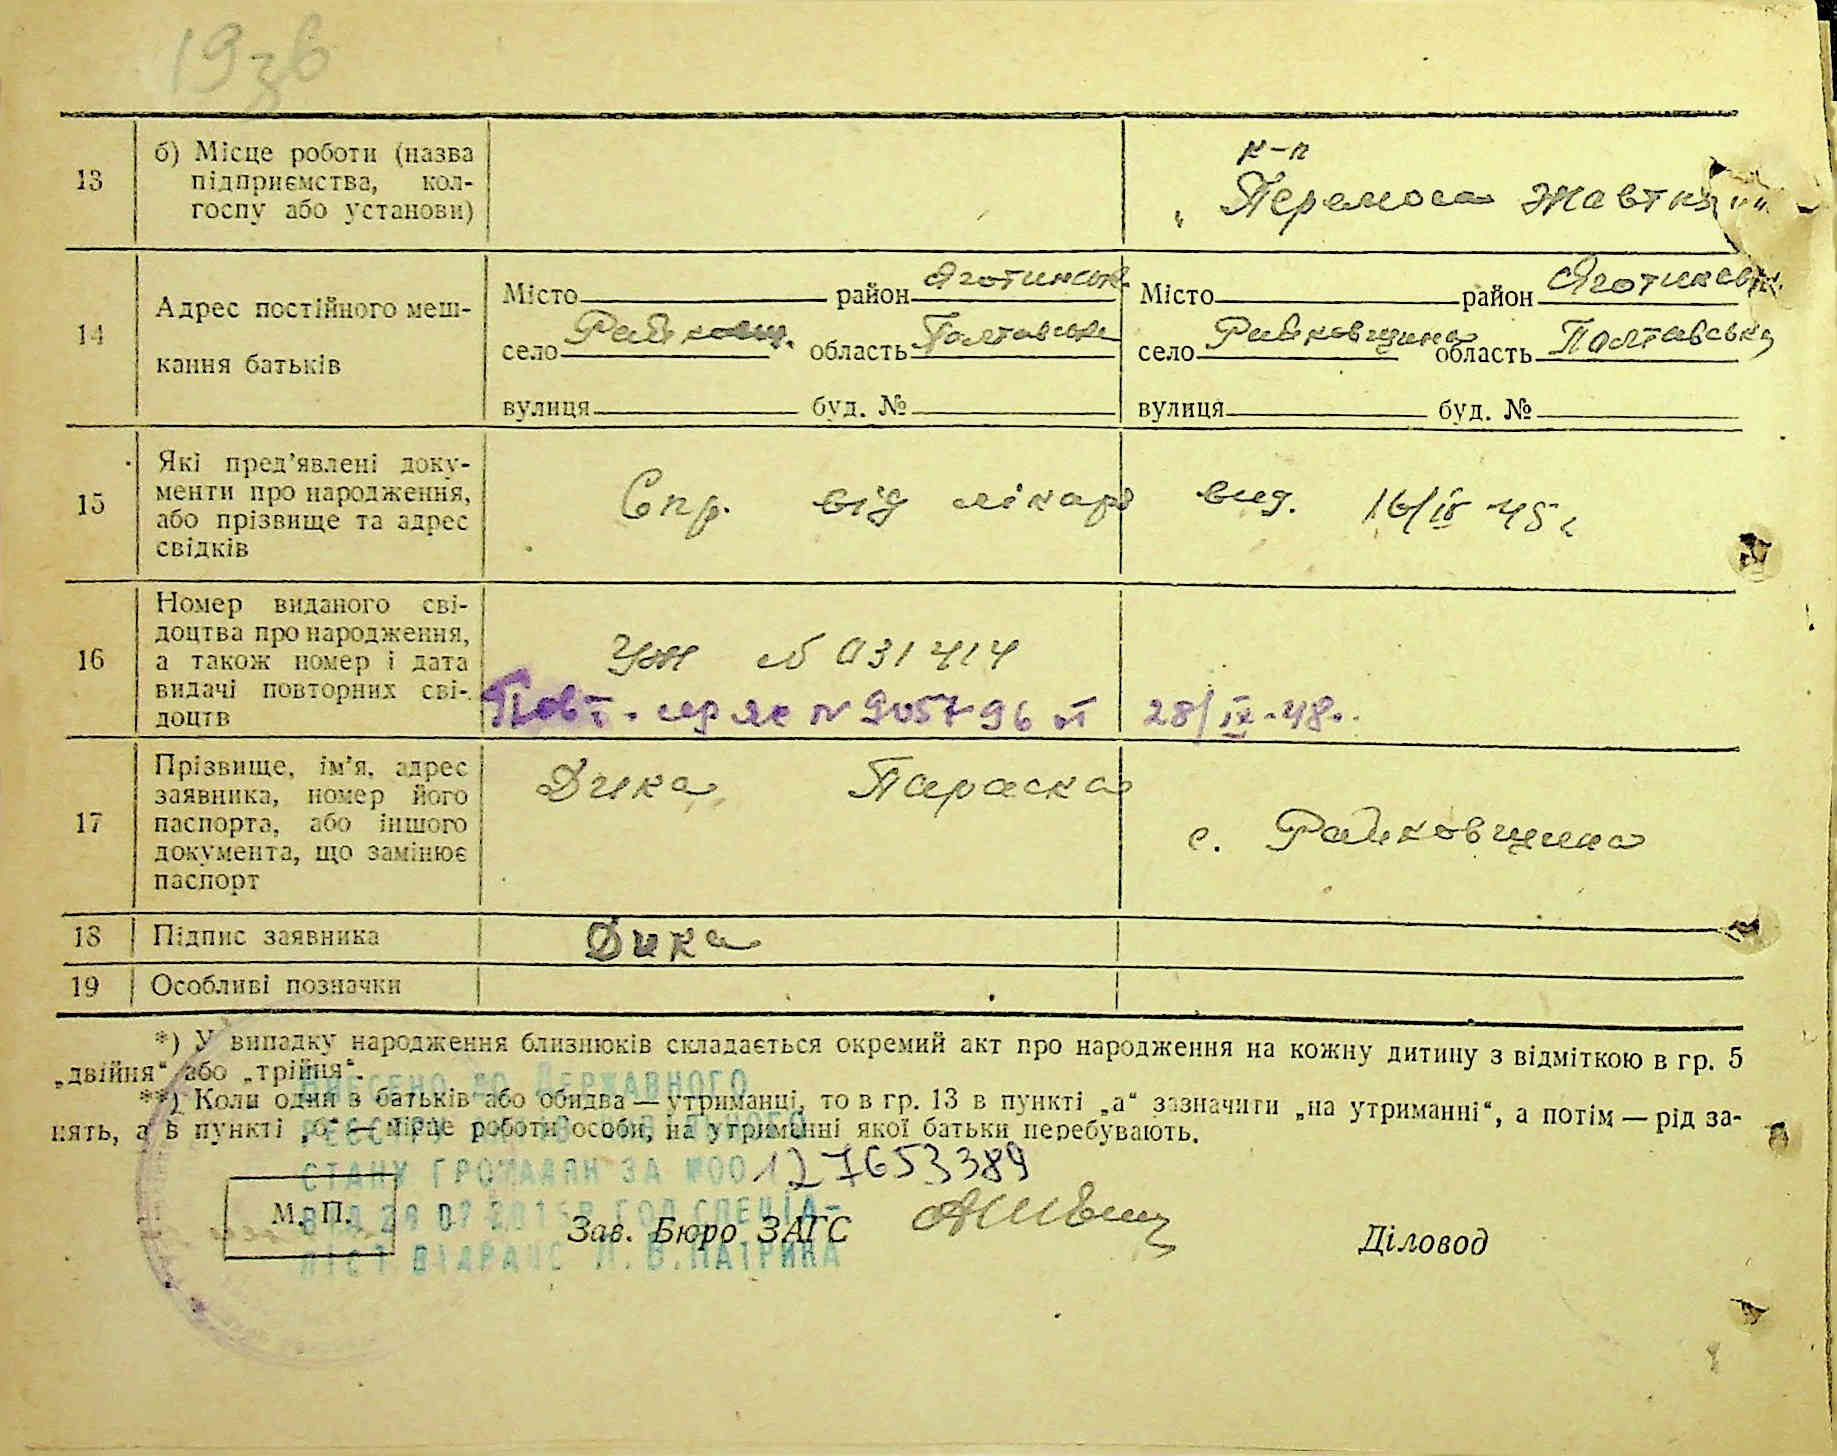 19зв
13 б) Місце роботи (назва підприємства, кол-
госпу або установи)
к-п
„Перемога Жовтня
14 Адрес постійного меш-
кання батьків
Місто район Яготинськ. Місто район Яготинськ.
село Райковщ. область Полтавська село Райковщина область Полтавська
вулиця буд. № вулиця буд. №
15 Які пред’явлені доку-
менти про народження,
або прізвище та адрес
свідків
Спр. від лікаря вид. 16/IV 45 г
16 Номер виданого сві-
доцтва про народження,
а також номер і дата
видачі повторних сві-
доцтв
№ 031414
Повт. № 905796 28/IX-48.
17 Прізвище, ім’я, адрес
заявника, номер його
паспорта, або іншого
документа, що замінює
паспорт
Дика Параска
с. Райковщина
18 Підпис заявника Дика
19 Особливі позначки
*) У випадку народження близнюків складається окремий акт про народження на кожну дитину з відміткою в гр. 5
„двійня“ або „трійня“.
**) Коли один з батьків або обидва — утриманці, то в гр. 13 в пункті „а“ зазначити „на утриманні“, а потім — рід за-
нять, а в пункті „б“ — місце роботи особи, на утриманні якої батьки перебувають.
ВНЕСЕНО ДО ДЕРЖАВНОГО
СТАНУ ГРОМАДЯН ЗА №00127653389
М. П.
Зав. Бюро ЗАГС Діловод